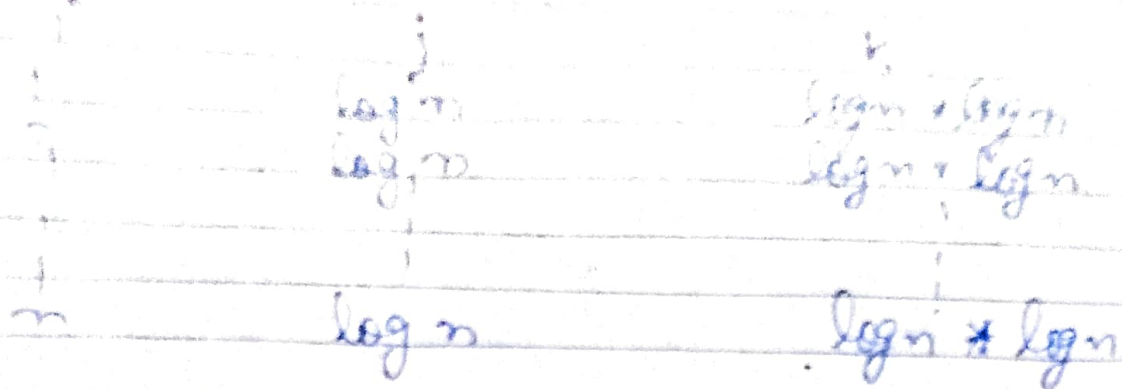 i j k
1 log n log n * log n
2 log n log n * log n
n log n log n * log n